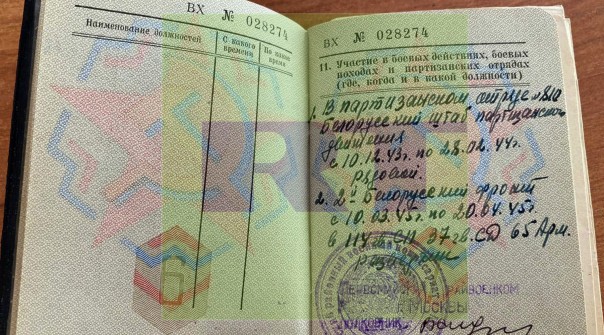 ВХ № 028274
Наименование должностей
С какого времени
По какое время
ВХ № 028274
11. Участие в боевых действиях, боевых
походах и партизанских отрядах
(где, когда и в какой должности)
1. В партизанском
Белорусский штаб партизанского
движения
с 10.12.43г. по 28.02.44г.
рядовой.
2. 2й Белорусский фронт
с 10.03.45г. по 20.04.45г
в 114 СП 37 гв. СД 65 Арм.
РАЙВОЕНКОМ
Г. МОСКВЫ
ПОЛКОВНИК